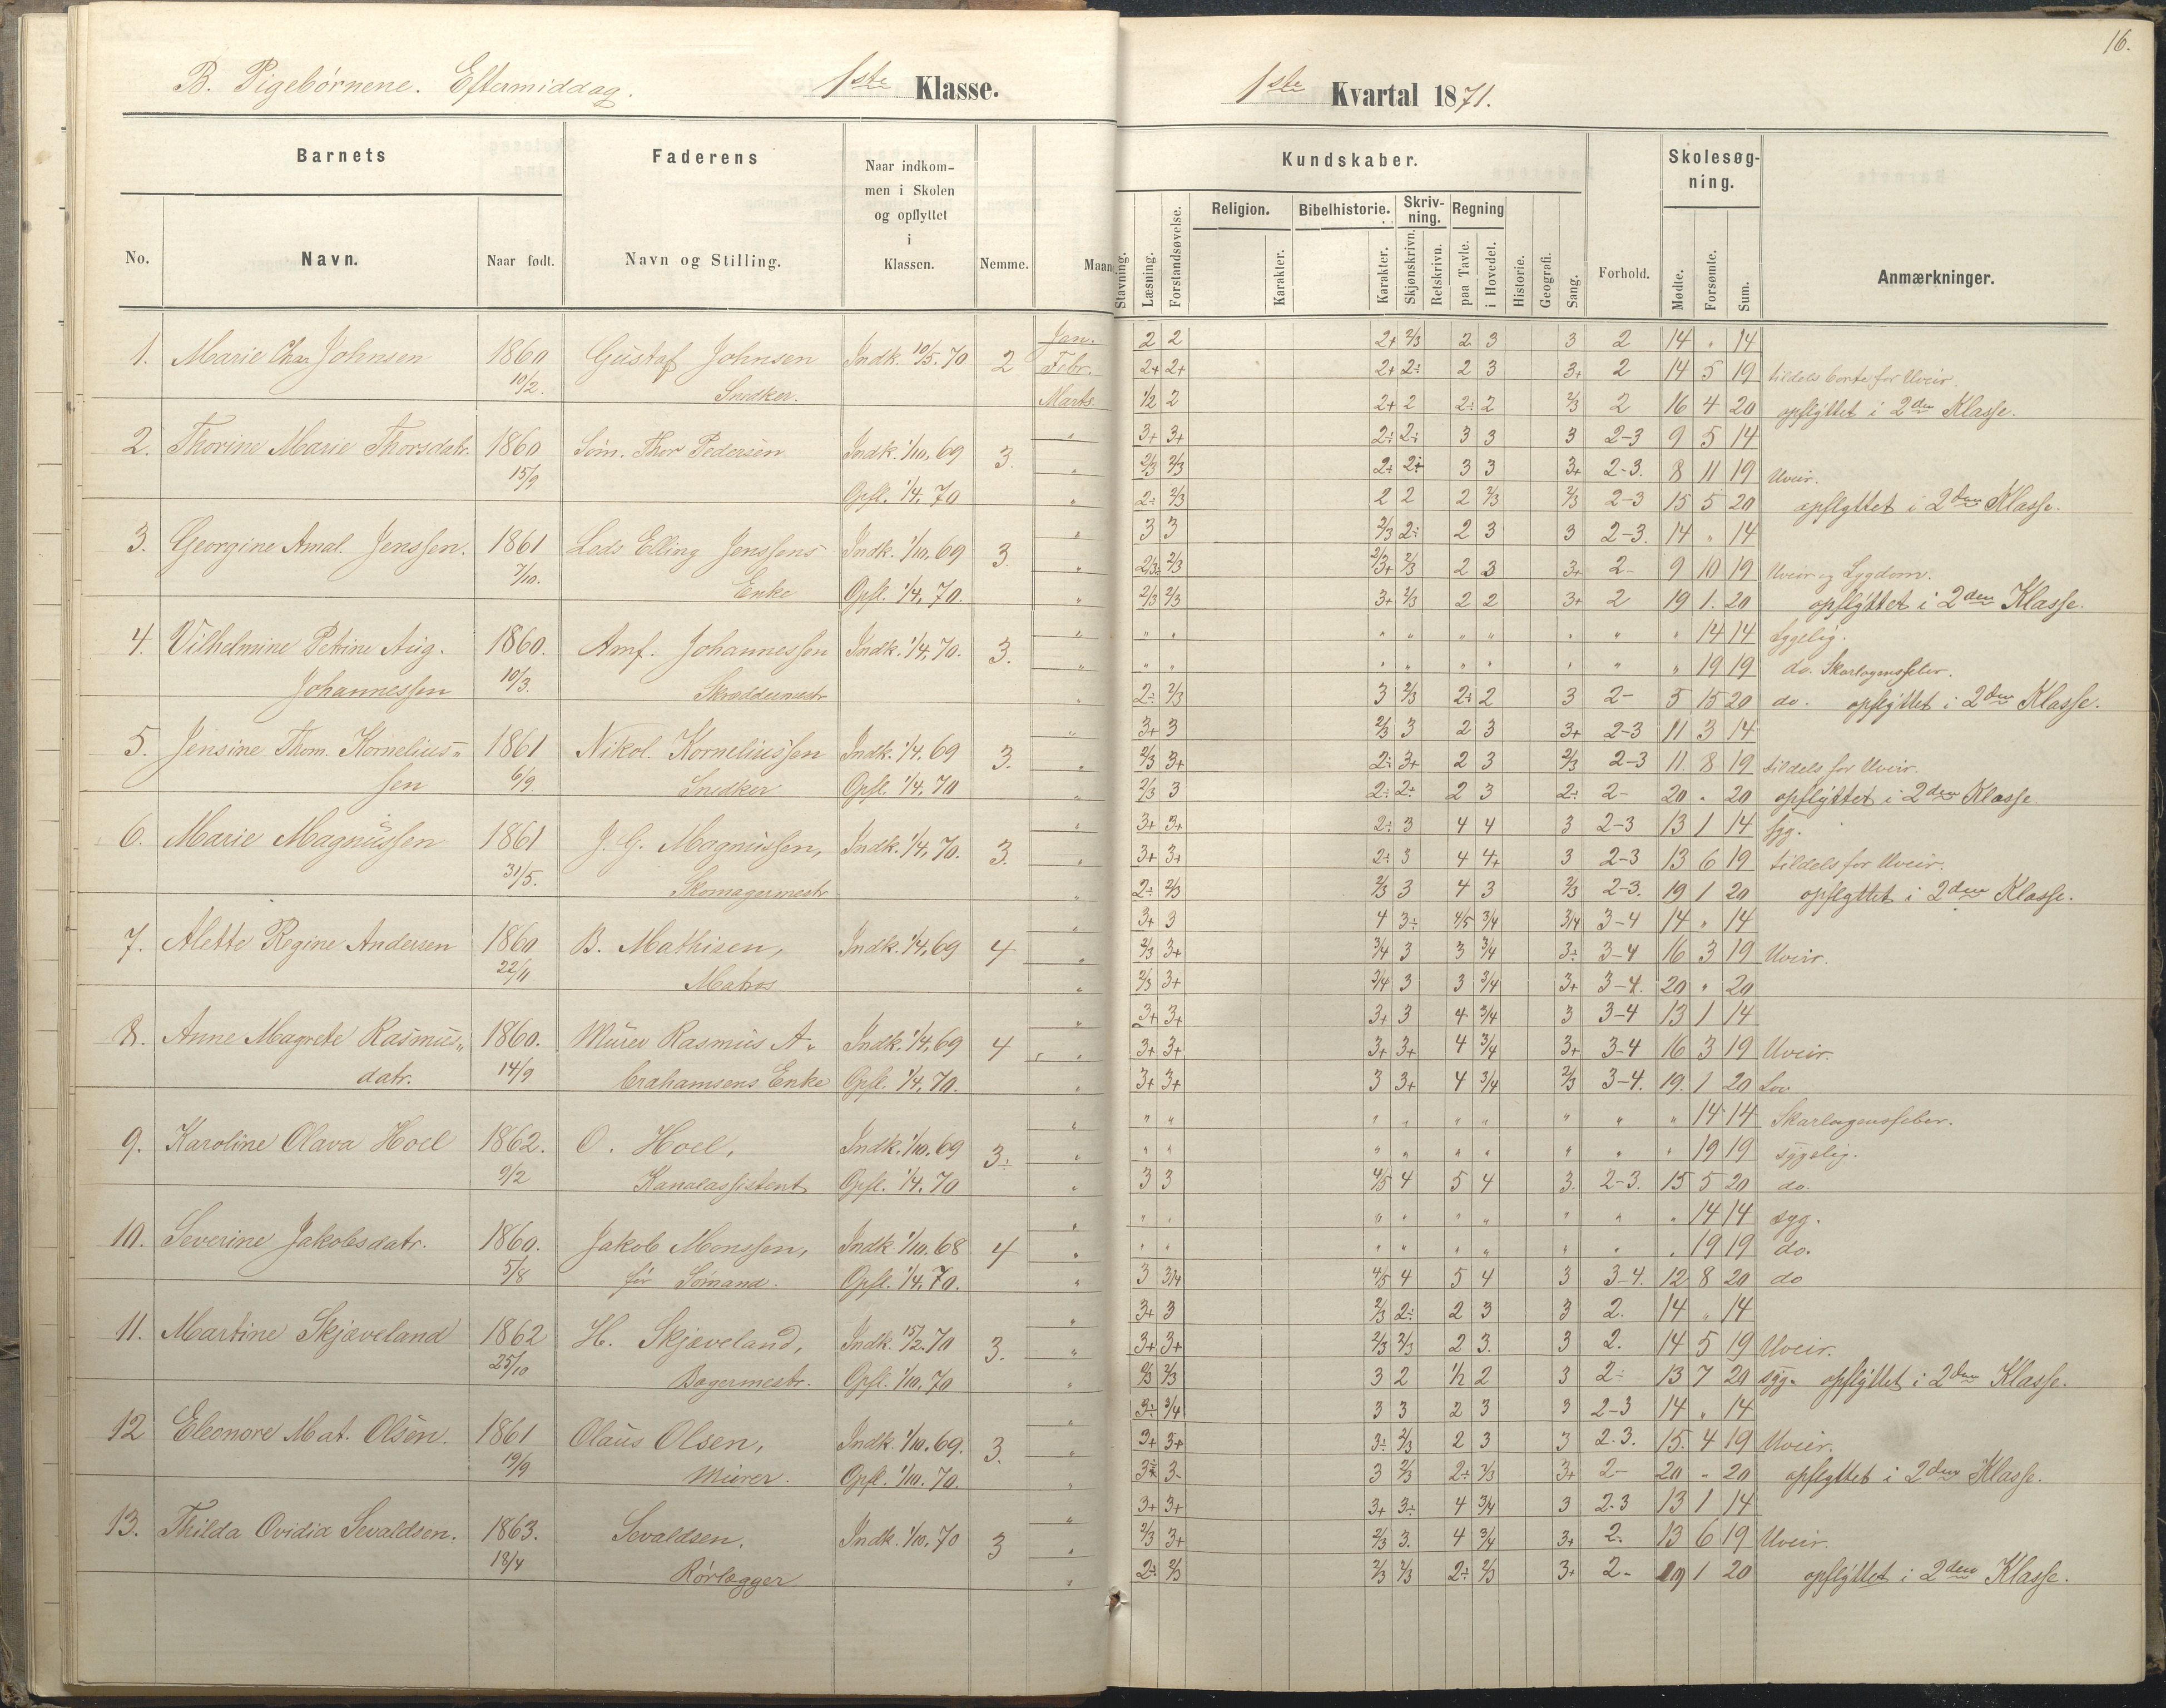 16.
B. Pigebørnene. Eftermiddag. 1ste Klasse. 1ste Kvartal 1871.
Barnets Faderens Naar indkommen i Skolen og opflyttet i Klassen. Nemme. Maaned Kundskaber. Forhold. Skolesøgning. Anmærkninger.
No. Navn. Naar født. Navn og Stilling. Stavning. Læsning. Forstandsøvelse. Religion. Karakter. Bibelhistorie. Karakter. Skrivning. Skjønskrivn. Retskrivn. Regning paa Tavle. i Hovedet. Historie. Geografi. Sang. Mødte. Forsømte. Sum.
Jan. 2 2 2+ 2/3 2 3 3 2 14 " 14
1. Marie Char. Johnsen 1860 Gustaf Johnsen Indk. 10/5. 70 2 Febr. 2+ 2+ 2+ 2÷ 2 3 3+ 2 14 5 19 tildels borte for Uveir.
10/2. Snedker. Marts. 1/2 2 2+ 2 2÷ 2 2/3 2 16 4 20 opflyttet i 2den Klasse.
" 3+ 3+ 2÷ 2÷ 3 3 3 2-3 9 5 14
2. Thorine Marie Thorsdatr. 1860 Søm. Thor Pedersen Indk. 1/10. 69 3. " 2/3 2/3 2÷ 2÷ 3 3 3+ 2-3. 8 11 19 Uveir.
15/9 Opfl. 1/4. 70 " 2÷ 2/3 2 2 2 2/3 2/3 2-3 15 5 20 opflyttet i 2den Klasse.
" 3 3 2/3 2÷ 2 3 3 2-3. 14 " 14
3. Georgine Amal. Jenssen. 1861 Lods Elling Jenssens Indk. 1/10. 69 3. " 2/3÷ 2/3 2/3+ 2/3 2 3 3+ 2- 9 10 19 Uveir og Sygdom.
7/10. Enke Opfl. 1/4. 70. " 2/3 2/3 3+ 2/3 2 2 3+ 2 19 1. 20 opflyttet i 2den Klasse.
" " " " " " " " " " 14 14 Sygelig.
4. Vilhelmine Petrine Aug. 1860. Amf. Johannessen Indk. 1/4. 70. 3. " " " " " " " " " " 19 19 do. Skarlagensfeber.
Johannessen 10/3. Skræddermestr " 2÷ 2/3 3 2/3 2÷ 2 3 2- 5 15 20 do. opflyttet i 2den Klasse.
" 3+ 3 2/3 3 2 3 3+ 2-3 11 3 14
5. Jensine Thom. Kornelius- 1861 Nikol. Korneliussen Indk. 1/4. 69 3. " 2/3 3+ 2÷ 3+ 2 3 2/3 2-3 11. 8 19 tildels for Uveir.
sen 6/9. Snedker Opfl. 1/4. 70 " 2/3 3 2÷ 2÷ 2 3 2÷ 2- 20 " 20 opflyttet i 2den Klasse
" 3+ 3+ 2÷ 3 4 4 3 2-3 13 1 14 syg.
6. Marie Magnussen 1861 J. G. Magnussen, Indk. 1/4. 70. 3. " 3+ 3+ 2÷ 3 4 4+ 3 2-3 13 6 19 tildels for Uveir.
31/5. Skomagermestr " 2÷ 2/3 2/3 3 4 3 2/3 2-3. 19 1 20 opflyttet i 2den Klasse.
" 3+ 3 4 3÷ 4/5 3/4 3/4 3-4 14 " 14
7. Alette Regine Andersen 1860 B. Mathisen, Indk. 1/4. 69 4 " 2/3 3+ 3/4 3 3 3/4 3÷ 3-4 16 3 19 Uveir.
22/11 Matros " 2/3 3+ 3/4 3 3 3/4 3+ 3-4. 20 " 20
" 3+ 3+ 3+ 3 4 3/4 3 3-4 13 1 14
8. Anne Magrete Rasmus- 1860. Murer Rasmus A- Indk. 1/4. 69 4 " 3+ 3+ 3+ 3+ 4 3/4 3+ 3-4 16 3 19 Uveir.
datr. 14/9 brahamsens Enke Opfl. 1/4. 70. " 3+ 3+ 3 3+ 4 3/4 2/3 3-4. 19. 1 20 Lov
" " " " " " " " " " 14 14 Skarlagensfeber.
9. Karoline Olava Hoel 1862. O. Hoel, Indk. 1/10. 69 3÷ " " " " " " " " " " 19 19 sygelig.
9/2 Kanalassistent Opfl. 1/4. 70 " 3 3 4/5 4 5 4 3. 2-3. 15 5 20 do.
" " " " " " " " " " 14 14 syg.
10. Severine Jakobsdatr. 1860. Jakob Monssen, Indk. 1/10. 68 4 " " " " " " " " " " 19 19 do.
5/8 før Sømand. Opfl. 1/4. 70. " 3 3/4 4/5 4 5 4 3 3-4. 12 8 20 do
" 3+ 3 2/3 2÷ 2 3 3 2. 14 " 14
11. Martine Skjæveland 1862 H. Skjæveland, Indk. 15/2. 70 3. " 3+ 3+ 2/3 2/3 2 3. 3 2. 14 5 19 Uveir.
25/10 Bagermestr. Opfl. 1/10. 70 " 2/3 2/3 3 2 1/2 2 3 2÷ 13 7 20 syg. opflyttet i 2den Klasse.
" 3÷ 3/4 3 3 2 3 3 2-3 14 " 14
12 Eleonore Mat. Olsen. 1861 Olaus Olsen, Indk. 1/10. 69. 3. " 3+ 3+ 3÷ 2/3 2 3 3 2.3. 15. 4 19 Uveir.
19/9 Murer. Opfl. 1/10. 70. " 3÷ 3- 3 2/3 2÷ 2/3 3+ 2- 20 - 20 opflyttet i 2den Klasse.
" 3+ 3+ 3+ 3÷ 4 3/4 3 2.3 13 1 14
13. Thilda Ovidia Sevaldsen. 1863. Sevaldsen. Indk. 1/10. 70 3 " 2/3 3+ 2/3 3. 4 3/4 3+ 2. 13 6 19 Uveir.
18/4 Rørlægger " 2÷ 2/3 2/3 2/3 2÷ 2/3 3+ 2- 19 1 20 opflyttet i 2den Klasse.